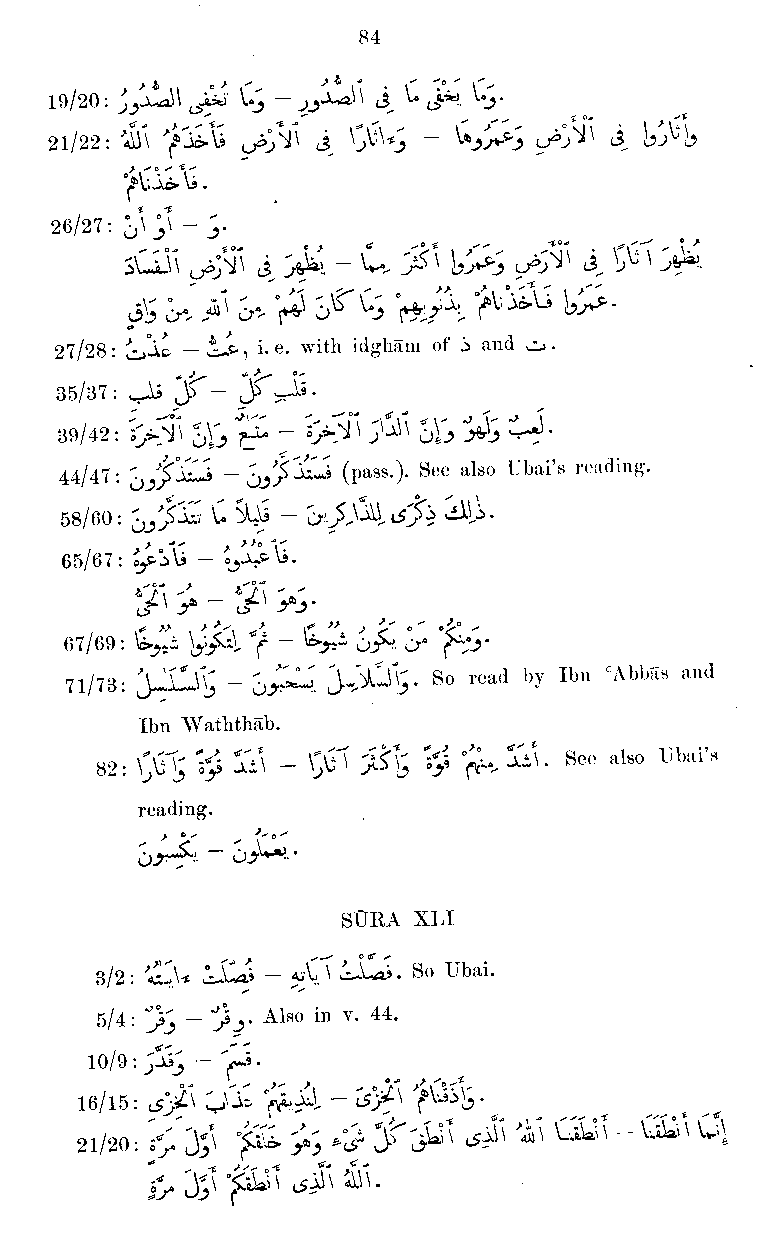 84
19/20: وَمَا تُخْفِى الصُّدُورُ – وَمَا يَخْفَى مَا فِى ٱلصُّدُورِ.
21/22: وَءَاثَارًا فِى ٱلْأَرْضِ فَأَخَذَهُمُ ٱللَّهُ – وَأَثَارُوا فِى ٱلْأَرْضِ وَعَمَرُوهَا
فَأَخَذْنَاهُمْ.
26/27: أَوْ أَنْ – وَ.
يُظْهِرَ فِى ٱلْأَرْضِ ٱلْفَسَادَ – يُظْهِرَ آثَارًا فِى ٱلْأَرْضِ وَعَمَرُوا أَكْثَرَ مِمَّا
عَمَرُوا فَأَخَذْنَاهُمْ بِذُنُوبِهِمْ وَمَا كَانَ لَهُمْ مِنَ ٱللهِ مِنْ وَاقٍ.
27/28: عُذْتُ – عُتُّ, i. e. with idghām of ذ and ت.
35/37: كُلِّ قلبِ – قَلْبِ كُلِّ.
39/42: مَتَٰعٌ وَإِنَّ ٱلْآخِرَةَ – لَعِبٌ وَلَهْوٌ وَإِنَّ ٱلدَّارَ ٱلْآخِرَةَ.
44/47: فَسَتَذْكُرُونَ – فَسَتُذَكَّرُونَ (pass.). See also Ubai's reading.
58/60: قَلِيلاً مَا تَتَذَكَّرُونَ – ذٰلِكَ ذِكْرَى لِلذَّاكِرِينَ.
65/67: فَٱدْعُوهُ – فَٱعْبُدُوهُ.
هُوَ ٱلْحَىُّ – وَهوَ ٱلْحَىُّ.
67/69: ثُمَّ لِتَكُونُوا شُيُوخًا – وَمِنْكُمْ مَنْ يَكُونُ شُيُوخًا.
71/73: وَٱلسَّلَٰسِلُ – وَٱلسَّلَاسِلَ يَسْحَبُونَ. So read by Ibn ʿAbbās and
Ibn Waththāb.
82: أَشَدَّ قُوَّةً وَآثَارًا – أَشَدَّ مِنْهُمْ قُوَّةً وَأَكْثَرَ آثَارًا. See also Ubai's
reading.
يَكْسِبُونَ – يَعْمَلُونَ.
SŪRA XLI
3/2: فُصِّلَتْ ءايَٰتُهُ – فَصَّلْتُ آيَاتِهِ. So Ubai.
5/4: وَقْرٌ – وِقْرٌ. Also in v. 44.
10/9: وَقَدَّرَ – قَسَّمَ.
16/15: لِنُذِيقَهُمْ عَذَابَ ٱلْخِزْىِ – وَأَذَقْنَاهُمُ ٱلْخِزْىَ.
21/20: أَنْطَقَنَا ٱللهُ ٱلَّذِى أَنْطَقَ كُلَّ شَىْءٍ وَهُوَ خَلَقَكُمْ أَوَّلَ مَرَّةٍ – إِنَّمَا أَنْطَقَنَا
ٱللَّهُ ٱلَّذِى أَنْطَقَكُمْ أَوَّلَ مَرَّةٍ.